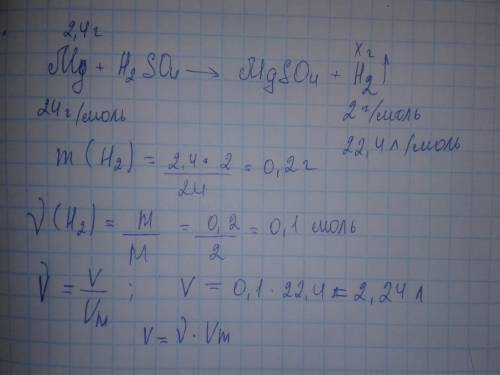 2,4г xг
Mg + H₂SO₄ → MgSO₄ + H₂↑
24г/моль 2г/моль
22,4л/моль
m(H₂) = 2,4·2/24 = 0,2г
ν(H₂) = m/M = 0,2/2 = 0,1 моль
ν = V/Vм ; V = 0,1·22,4 = 2,24л
V = ν·Vm